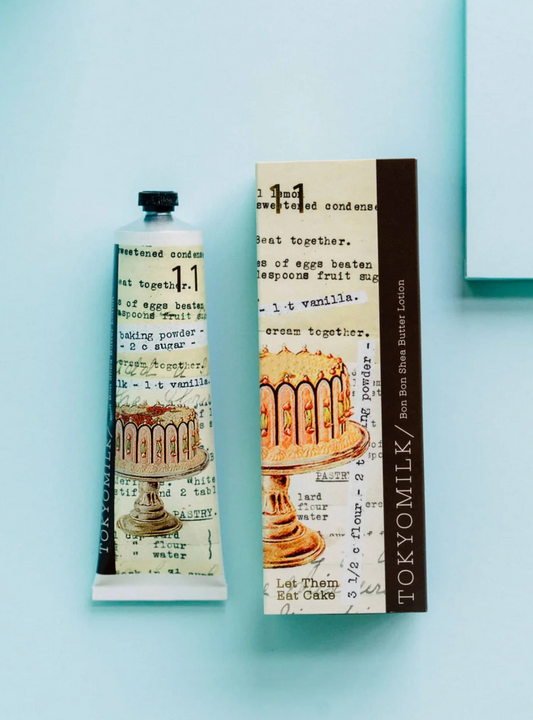 sweetened condens
11
eat together.
s of eggs beaten
aspoons fruit su
baking powder -
- 2 c sugar -
cream together.
lk - 1 t vanilla.
White
stif and 2 tabl
PASTRY.
cup lard
" flour
" water
TOKYOMILK/
11
1 lemon
sweetened condense
Beat together.
es of eggs beaten
lespoons fruit sug
- 1 t vanilla.
cream together.
PASTR
lard
flour
water
3 1/2 c flour - 2 t
ing powder -
Let Them
Eat Cake
TOKYOMILK/ Bon Bon Shea Butter Lotion